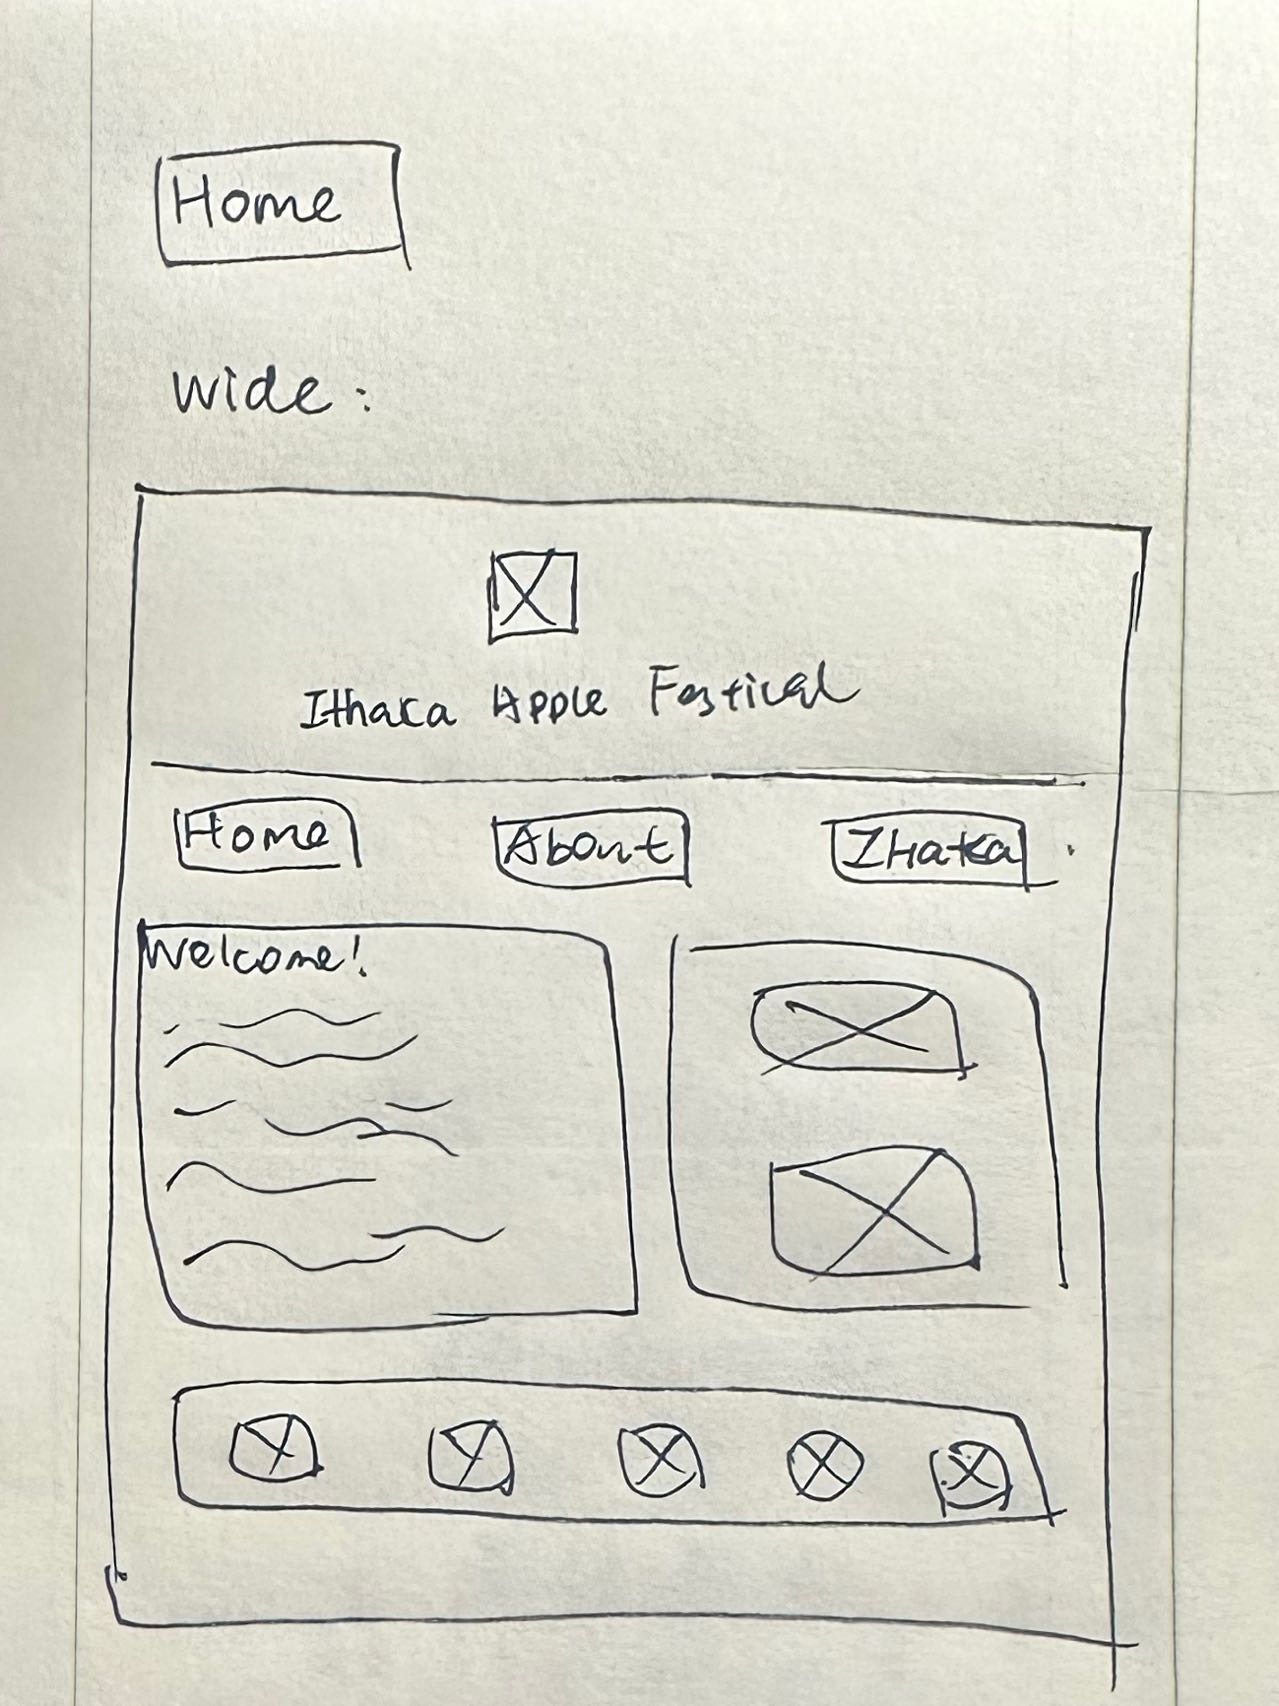 Home
Wide:
Ithaca Apple Festival
Home About Ithaka
Welcome!